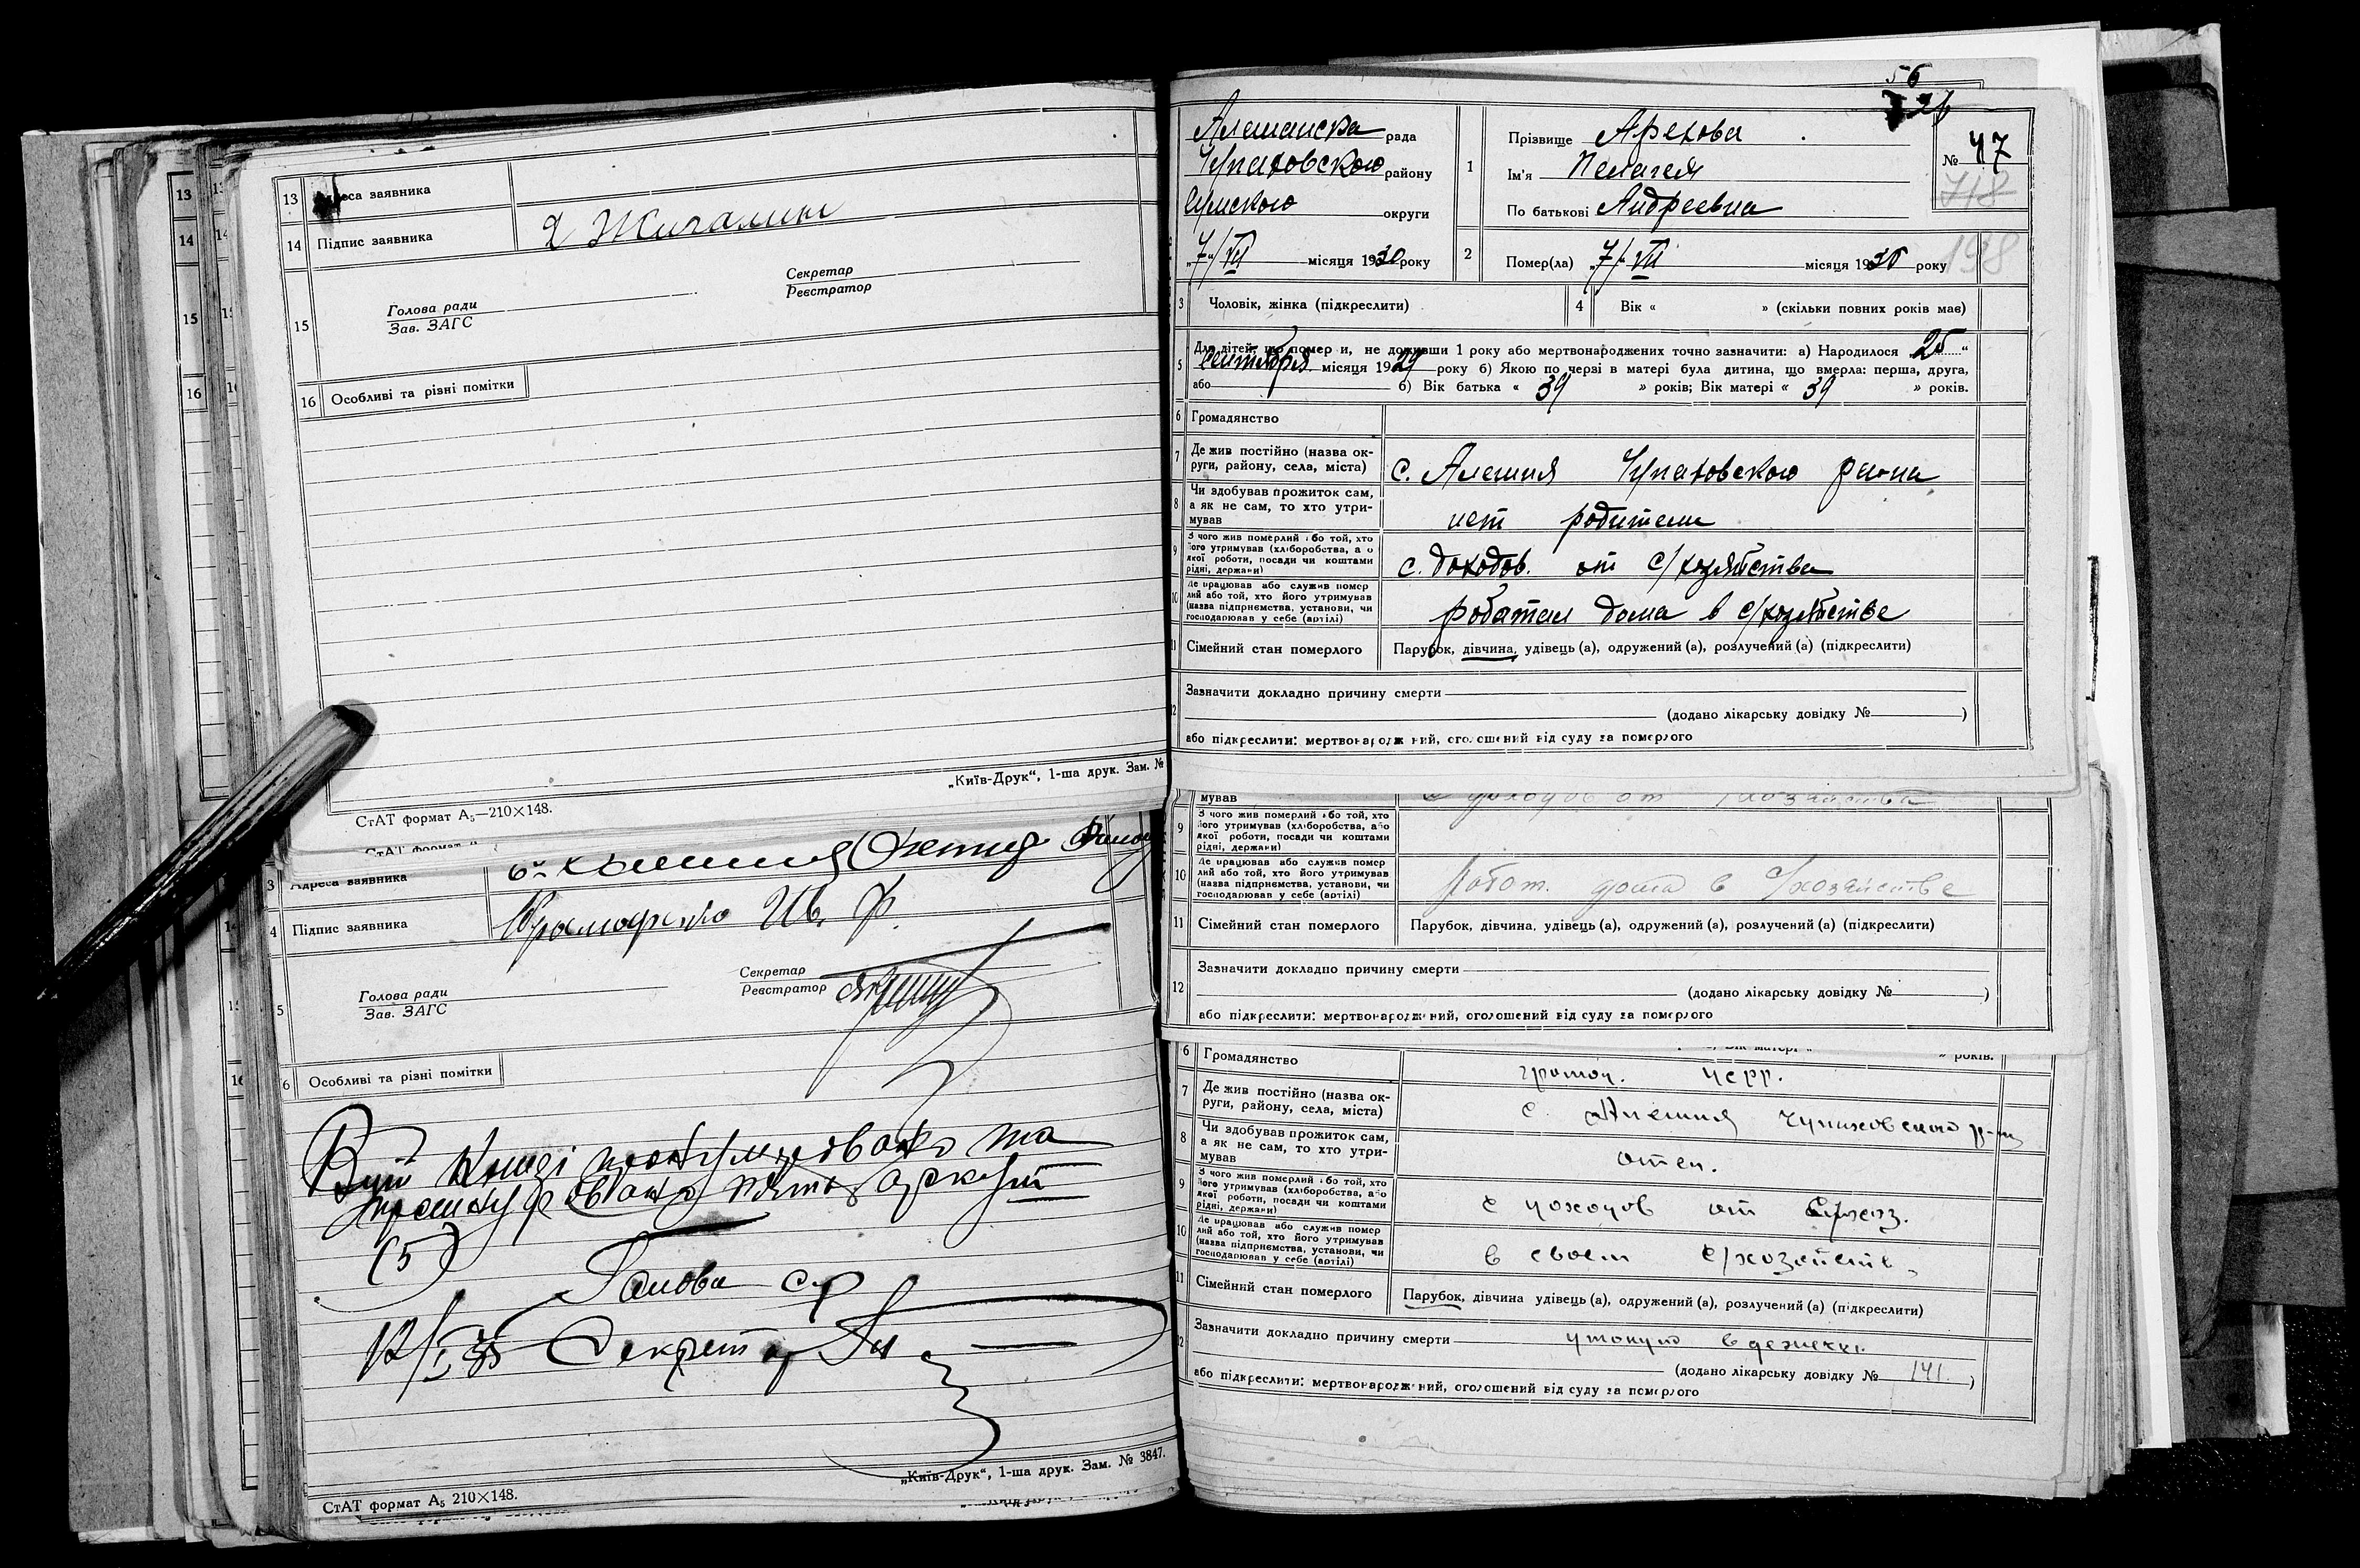 13
14
15
16
13 Адреса заявника
14 Підпис заявника
Жигалин
15
Голова ради
Зав. ЗАГС
Секретар
Реєстратор
16 Особливі та різні помітки
„Київ-Друк“, 1-ша друк. Зам. №
СтАТ формат А₅—210×148.
Адреса заявника
4 Підпис заявника
Ив. Ф.
5
Голова ради
Зав. ЗАГС
Секретар
Реєстратор
6 Особливі та різні помітки
В цій книзі пронумеровано та
прошнуровано пять аркушів
(5)
Голова с/р
Секретар
„Київ-Друк“, 1-ша друк. Зам. № 3847.
СтАТ формат А₅ 210×148.
56
26
Алешанска рада
Чупаховского району
Сумского округи
„7“/VII місяця 1930 року
1
Прізвище Арехова
Ім'я Пелагея
По батькові Андреевна
№ 47
718
198
2 Помер(ла) „7/“ VII місяця 1930 року
3 Чоловік, жінка (підкреслити)
4 Вік « » (скільки повних років має)
5 Для дітей, що померли, не доживши 1 року або мертвонароджених точно зазначити: а) Народилося „25“
сентября місяця 1929 року б) Якою по черзі в матері була дитина, що вмерла: перша, друга,
або б) Вік батька « 39 » років; Вік матері « 39 » років.
6 Громадянство
7 Де жив постійно (назва округи, району, села, міста)
с. Алешня Чупаховского раина
8 Чи здобував прожиток сам, а як не сам, то хто утримував
нет родители
9 З чого жив померлий або той, хто його утримував (хліборобства, або якої роботи, посади чи коштами рідні, держави)
с. доходов. от с/хозяйства
10 Де працював або служив померлий або той, хто його утримував (назва підприємства, установи, чи господарював у себе (артілі)
роботал дома в с/хозяйстве
11 Сімейний стан померлого
Парубок, дівчина, удівець (а), одружений (а), розлучений (а) (підкреслити)
12
Зазначити докладно причину смерти
(додано лікарську довідку № )
або підкреслити: мертвонароджений, оголошений від суду за померлого
мував
с доходов от с/хозяйства
9 З чого жив померлий або той, хто його утримував (хліборобства, або якої роботи, посади чи коштами рідні, держави)
10 Де працював або служив померлий або той, хто його утримував (назва підприємства, установи, чи господарював у себе (артілі)
Работ. дома в с/хозяйстве
11 Сімейний стан померлого
Парубок, дівчина, удівець (а), одружений (а), розлучений (а) (підкреслити)
12
Зазначити докладно причину смерти
(додано лікарську довідку № )
або підкреслити: мертвонароджений, оголошений від суду за померлого
6 Громадянство
7 Де жив постійно (назва округи, району, села, міста)
с. Алешня Чупаховского р-на
8 Чи здобував прожиток сам, а як не сам, то хто утримував
отец.
9 З чого жив померлий або той, хто його утримував (хліборобства, або якої роботи, посади чи коштами рідні, держави)
с доходов от с/хоз.
10 Де працював або служив померлий або той, хто його утримував (назва підприємства, установи, чи господарював у себе (артілі)
в своем с/хозяйств.
11 Сімейний стан померлого
Парубок, дівчина удівець (а), одружений (а), розлучений (а) (підкреслити)
Зазначити докладно причину смерти утонул
(додано лікарську довідку № 141. )
або підкреслити: мертвонароджений, оголошений від суду за померлого